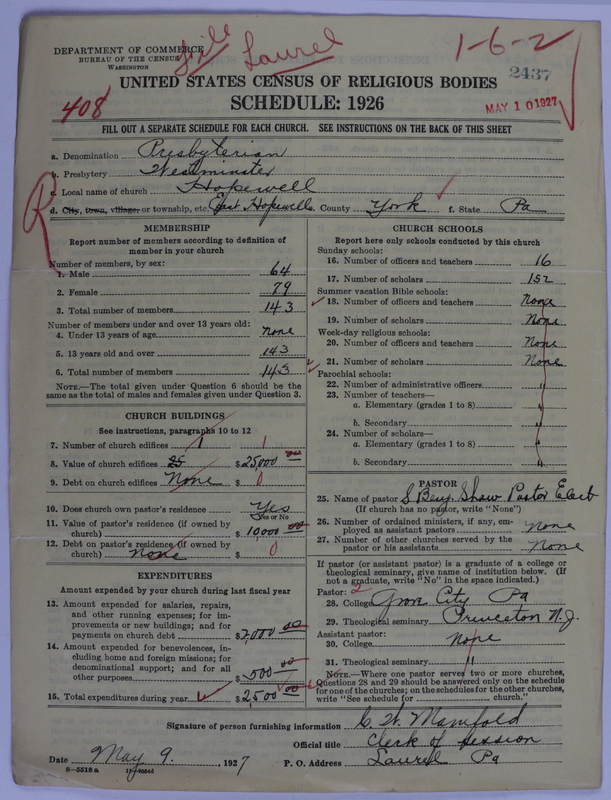 DEPARTMENT OF COMMERCE
BUREAU OF THE CENSUS
WASHINGTON
Laurel
1-6-2
2437
408
MAY 10 1927
UNITED STATES CENSUS OF RELIGIOUS BODIES
SCHEDULE: 1926
FILL OUT A SEPARATE SCHEDULE FOR EACH CHURCH. SEE INSTRUCTIONS ON THE BACK OF THIS SHEET
a. Denomination Presbyterian
b. Presbytery Westminster
c. Local name of church Hopewell
d. City, town, village, or township, etc. East Hopewell e. County York f. State Pa
R
MEMBERSHIP
Report number of members according to definition of
member in your church
Number of members, by sex:
1. Male 64
2. Female 79
3. Total number of members 143
Number of members under and over 13 years old:
4. Under 13 years of age none
5. 13 years old and over 143
6. Total number of members 143
NOTE.—The total given under Question 6 should be
same as the total of males and females given under Question 3.
CHURCH BUILDINGS
See instructions, paragraphs 10 to 12
7. Number of church edifices 1 1
8. Value of church edifices 25 $25000 00
9. Debt on church edifices None $ 0
10. Does church own pastor's residence Yes
Yes or No
11. Value of pastor's residence (if owned by
church) $10,000 00
12. Debt on pastor's residence (if owned by
church) None $ 0
EXPENDITURES
Amount expended by your church during last fiscal year
13. Amount expended for salaries, repairs,
and other running expenses; for im-
provements or new buildings; and for
payments on church debt $2,000 00
14. Amount expended for benevolences, in-
cluding home and foreign missions; for
denominational support; and for all
other purposes $ 500 00
15. Total expenditures during year $2500 00
CHURCH SCHOOLS
Report here only schools conducted by this church
Sunday schools:
16. Number of officers and teachers 16
17. Number of scholars 152
Summer vacation Bible schools:
18. Number of officers and teachers None
19. Number of scholars None
Week-day religious schools:
20. Number of officers and teachers None
21. Number of scholars None
Parochial schools:
22. Number of administrative officers "
23. Number of teachers—
a. Elementary (grades 1 to 8) "
b. Secondary "
24. Number of scholars—
a. Elementary (grades 1 to 8) "
b. Secondary "
PASTOR
25. Name of pastor S Benj. Shaw Pastor Elect
(If church has no pastor, write "None")
26. Number of ordained ministers, if any, em-
ployed as assistant pastors None
27. Number of other churches served by the
pastor or his assistants None
If pastor (or assistant pastor) is a graduate of a college or
theological seminary, give name of institution below. (If
not a graduate, write "No" in the space indicated.)
Pastor: 2
28. College Grove City Pa
29. Theological seminary Princeton N.J.
Assistant pastor:
30. College None
31. Theological seminary "
NOTE.—Where one pastor serves two or more churches,
Questions 28 and 29 should be answered only on the schedule
for one of the churches; on the schedules for the other churches,
write "See schedule for church."
Signature of person furnishing information C. W. Manifold
Official title Clerk of Session
Date May 9. , 1927 P. O. Address Laurel Pa
S—5518 a